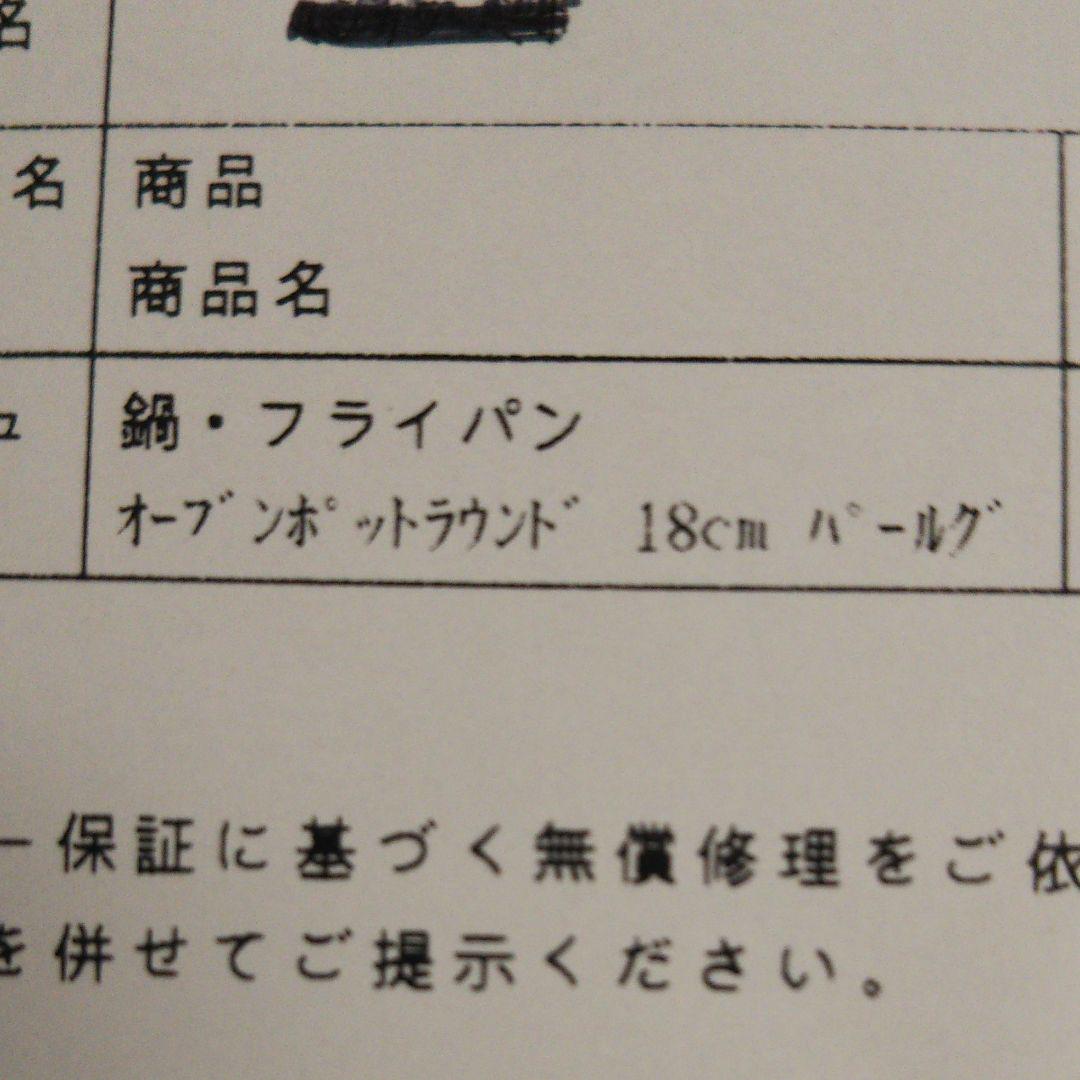 名
名 商品
商品名
ュ 鍋・フライパン
オーブンポットラウンド 18cm パールグ
ー保証に基づく無償修理をご依
を併せてご提示ください。